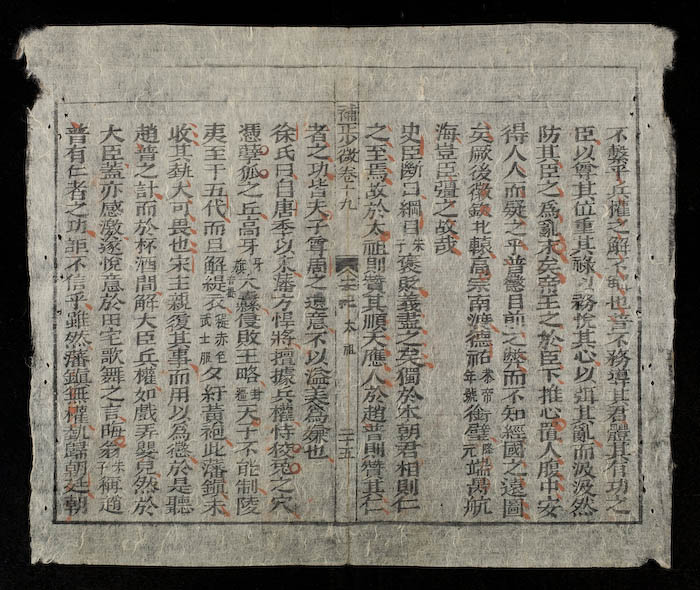 不繫乎兵權之解不解也普不務導其君體其有功之
臣以尊其位重其祿以務悅其心以弭其亂而汲汲然
防其臣之爲亂末矣帝王之於臣下推心置人腹中安
得人人而疑之乎普懲目前之弊而不知經國之遠圖
矣厥後徽欽北轅高宗南渡德祐恭帝年號銜璧降元端昺航
海豈臣彊之故哉
史臣斷曰綱目朱子褒貶義蓋之矣獨於本朝君相則仁
之至焉故於太祖則贊其順天應人於趙普則贊其仁
者之功皆夫子尊周之遺意不以溢美爲嫌也
補正少微卷十九
宋紀 太祖
二十五
徐氏曰自唐季以來藩方悍將擅據兵權恃狡兎之穴
憑孽狐之丘高牙牙旗大纛侵敗王略封疆天子不能制陵
夷至于五代而旦解緹衣緹赤色武士服夕紆黃袍此藩鎭末
收其埶大可畏也宋主親復其事而用以爲德於是聽
趙普之計而於杯酒間解大臣兵權如戲弄嬰兒然於
大臣蓋亦感激遂悅意於田宅歌舞之言晦翁朱子稱趙
普有仁者之功詎不信乎雖然藩鎭無權埶歸朝廷朝